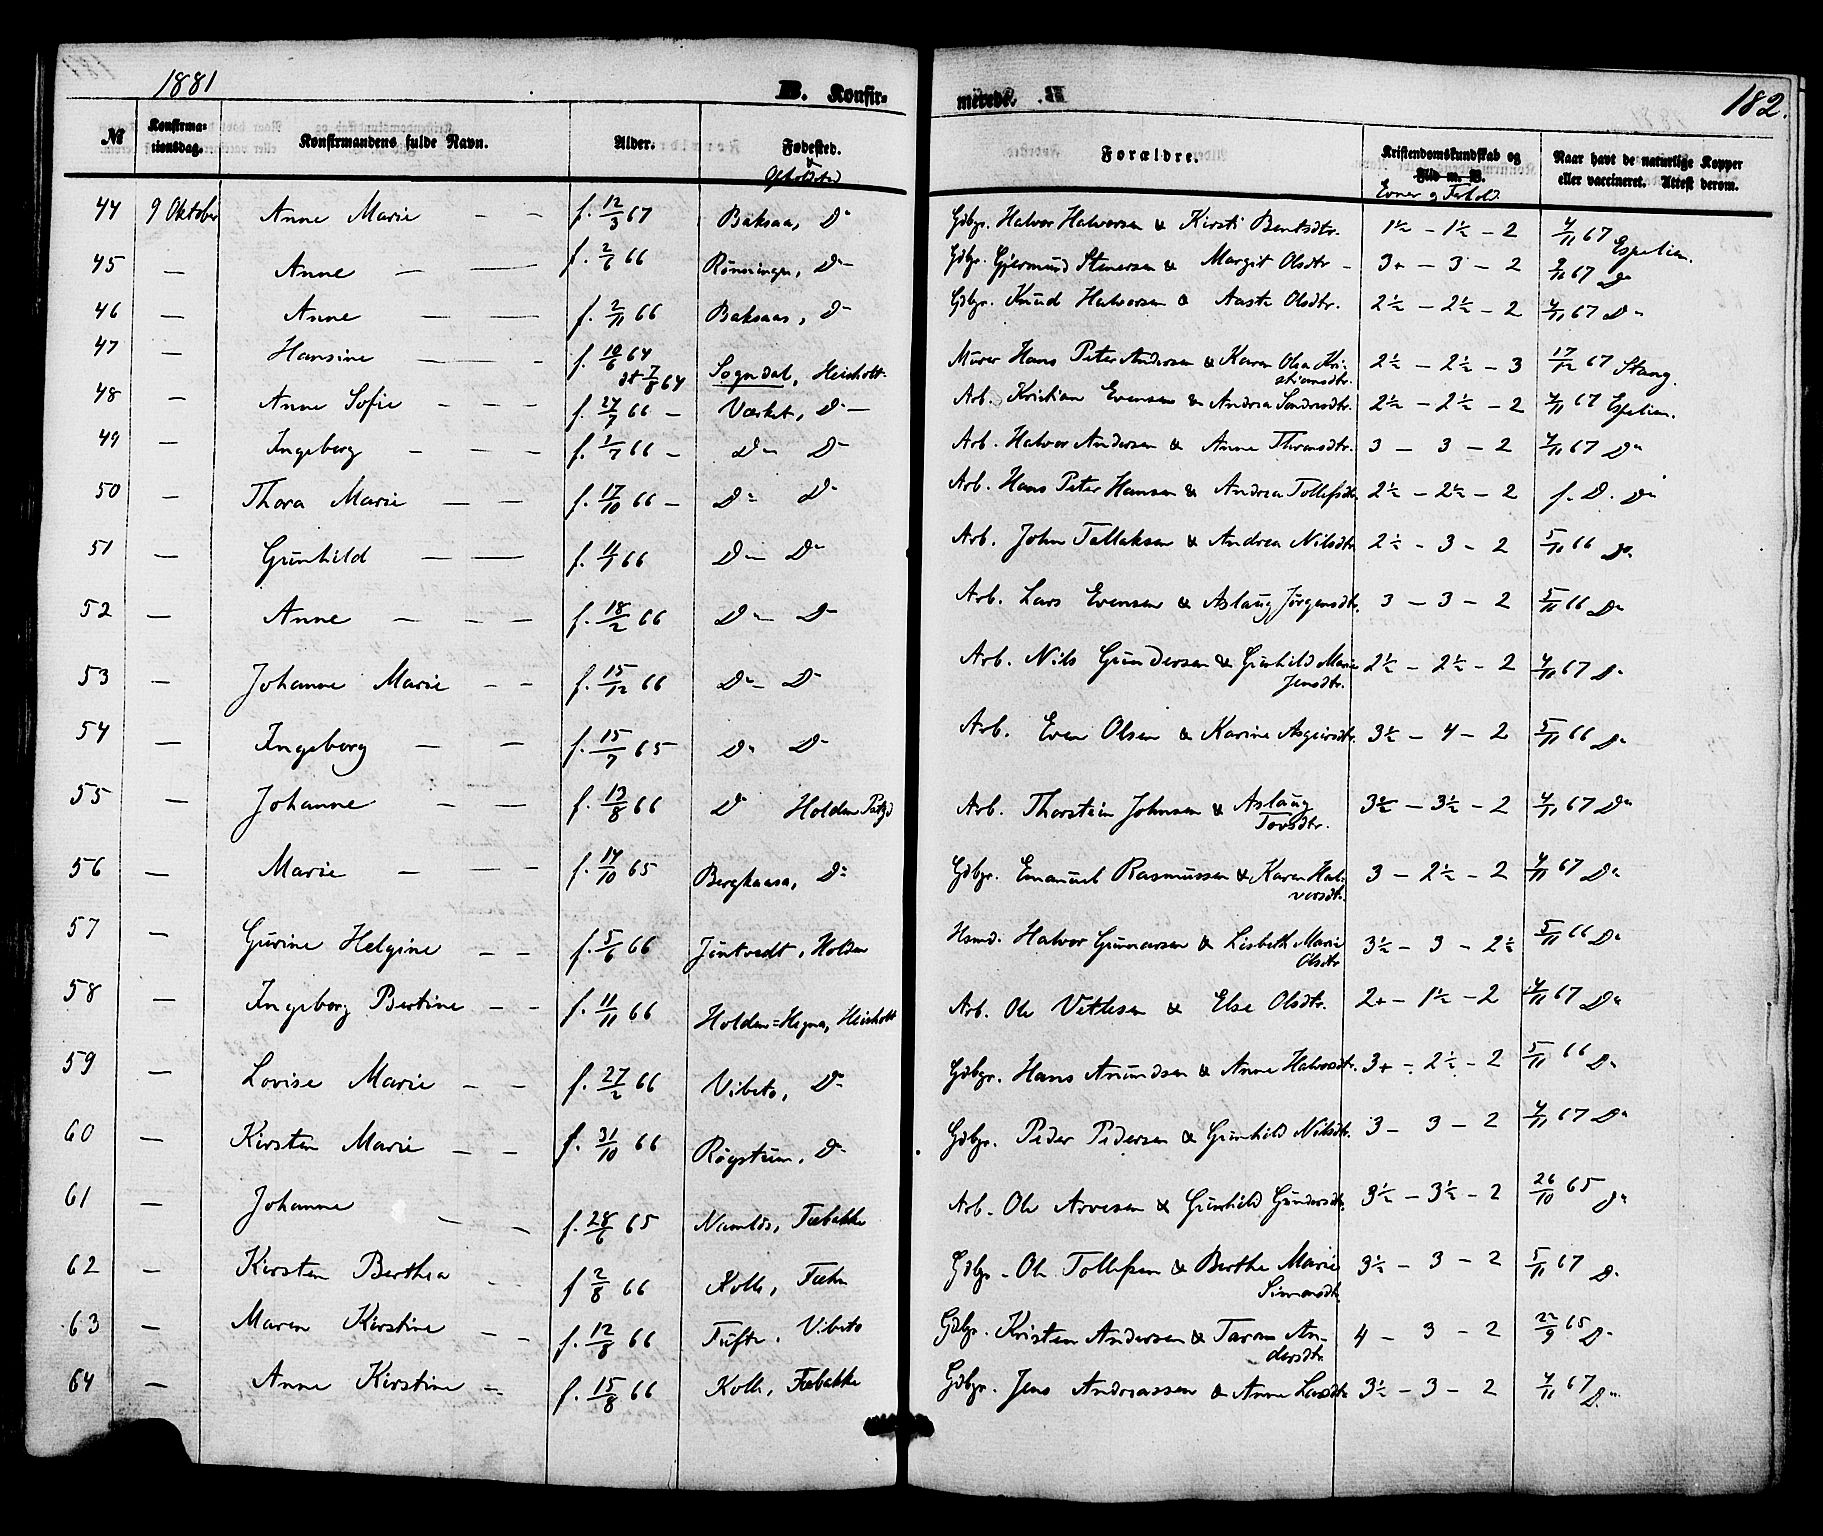 1881 B. Konfir- merede. 182.
№ Konfirma- tionsdag. Konfirmandens fulde Navn. Alder. Fødested. & Opholdssted Forældre. Kristendomskundskab og Flid m. V. Evner og Forhold. Naar havt de naturlige Kopper eller vaccineret. Attest derom.
44 9 Oktober Anne Marie — — f. 12/3 67 Baksaa, Do Gdbgr. Halvor Halvorsen & Kirsti Bentsdtr. 1½ – 1½ – 2 4/11 67 Espelien.
45 — Anne — — f. 2/6 66 Rønningen, Do Gdbgr. Gjermund Stenersen & Margit Olsdtr – 3+ – 3 – 2 2/11 67 Do
46 — Anne — — f. 2/11 66 Baksaas, Do Gdbgr. Knud Halvorsen & Aaste Olsdtr. 2½ – 2½ – 2 4/11 67 Do
47 — Hansine — — f. 10/6 64 dt 7/8 64 Sogndal, Heisholt Murer Hans Peter Andersen & Karen Olea Kri- stiansdtr. 2½ – 2½ – 3 17/12 67 Stang.
48 — Anne Sofie — — f. 27/7 66 – Værket, Do Arb. Kristian Evensen & Andrea Sondresdtr. 2½ – 2½ – 2 4/11 67 Espelien.
49 — Ingeborg — — f. 1/7 66 – Do Do Arb. Halvor Andersen & Anne Thomsdtr. 3 – 3 – 2 4/11 67 Do
50 — Thora Marie — — f. 17/10 66 – Do Do Arb. Hans Peter Hansen & Andrea Tollefsdtr 2½ – 2½ – 2 f. D. Do
51 — Gunhild — — f. 4/7 66 Do Do Arb. John Tallaksen & Andrea Nilsdtr 2½ – 3 – 2 5/11 66 Do
52 — Anne — — f. 18/2 66 Do Do Arb. Lars Evensen & Aslaug Jørgensdtr. 3 – 3 – 2 5/11 66 Do
53 — Johanne Marie — — f. 15/12 66 Do Do Arb. Nils Gundersen & Gunhild Marie Jensdtr. 2½ – 2½ – 2 4/11 67 Do
54 — Ingeborg — — f. 15/7 65 Do Do Arb. Even Olsen & Karine Asgeirsdtr. 3½ – 4 – 2 5/11 66 Do
55 — Johanne — — f. 13/8 66 Do Holden Pstgd Arb. Thorstein Johnsen & Aslaug Tovsdtr. 3½ – 3½ – 2 4/11 67 Do
56 — Marie — — f. 14/10 65 Berghaasa, Do Gdbgr. Emanuel Rasmussen & Karen Hal- vorsdtr. 3 – 2½ – 2 4/11 67 Do
57 — Gurine Helgine — — f. 5/6 66 Jøntvedt, Holden Hsmd. Halvor Gunnarsen & Lisbeth Marie Olsdtr 3½ – 3 – 2½ 5/11 66 Do
58 — Ingeborg Bertine — — f. 11/11 66 Holden=Hegna, Heisholt Arb. Ole Vetlesen & Else Olsdtr. 2+ – 1½ – 2 4/11 67 Do
59 — Lovise Marie — — f. 27/2 66 Vibeto, Do Gdbgr. Hans Amundsen & Anne Halvorsdtr. 3+ – 2½ – 2 5/11 66 Do
60 — Kirsten Marie — — f. 31/10 66 Røgstuen, Do Gdbgr. Peder Pedersen & Gunhild Nilsdtr. 3 – 3 – 2 4/11 67 Do
61 — Johanne — — f. 28/6 65 Namløs, Tæbakke Arb. Ole Arvesen & Gunhild Gundersdtr. 3½ – 3½ – 2 26/10 65 Do
62 — Kirsten Berthea — — f 2/8 66 Kolle, Teehn Gdbgr. Ole Tollefsen & Berthe Marie Simonsdtr. 3½ – 3 – 2 5/11 67 Do
63 — Maren Kirstine — — f. 12/8 66 Tufte, Vibeto Gdbgr. Kristen Andersen & Taran An- dersdtr. 4 – 3 – 2 22/9 65 Do
64 — Anne Kirstine — f. 15/8 66 Kolle, Tæbakke Gdbgr. Jens Andreassen & Anne Larsdtr 3½ – 3 – 2 4/11 67 Do